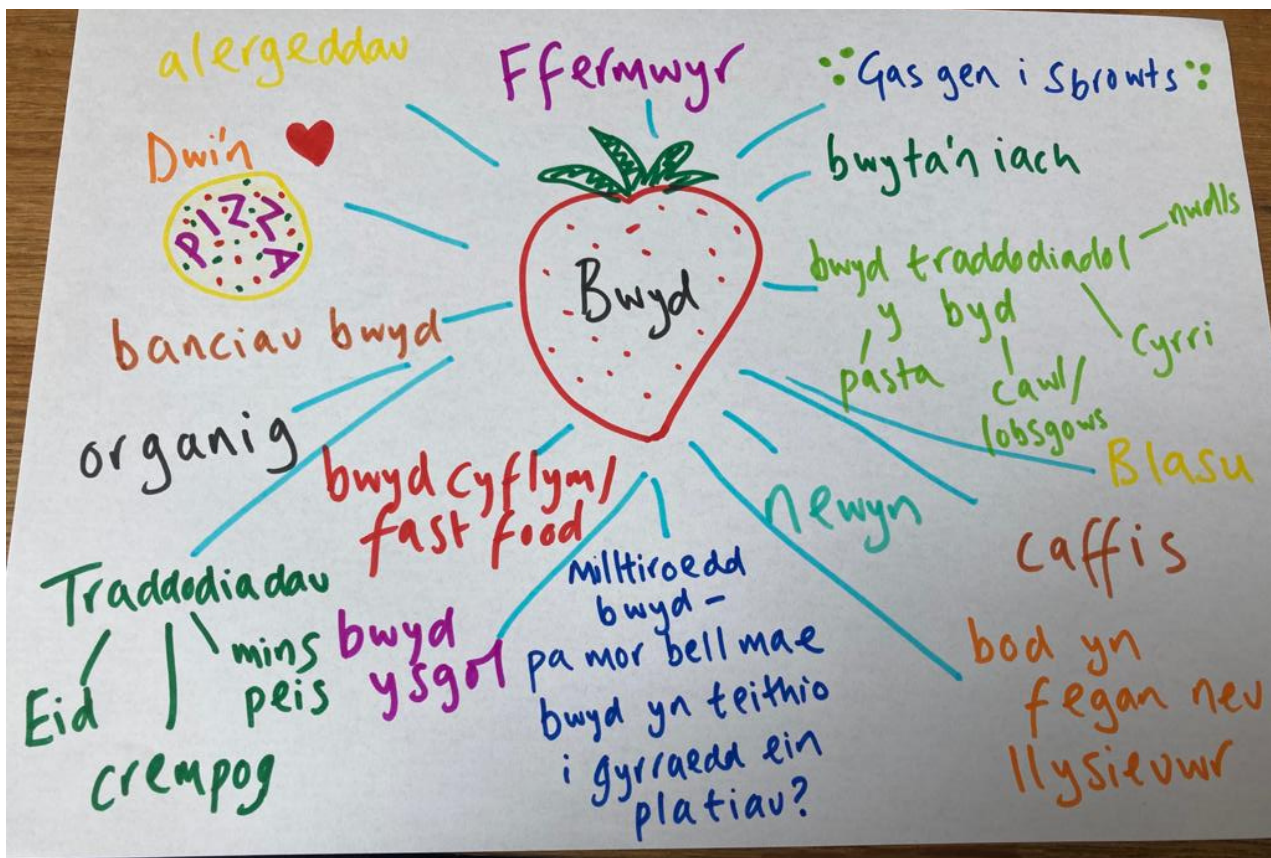 alergeddau
Ffermwyr
Gas gen i sbrowts
Dwi'n
PIZZA
bwyta'n iach
bwyd traddodiadol
y byd
nwdls
cyrri
pasta
cawl/
lobsgows
Bwyd
banciau bwyd
organig
bwyd cyflym/
fast food
newyn
Blasu
caffis
Traddodiadau
Eid
crempog
mins
peis
bwyd
ysgol
Milltiroedd
bwyd -
pa mor bell mae
bwyd yn teithio
i gyrraedd ein
platiau?
bod yn
fegan neu
llysieuwr